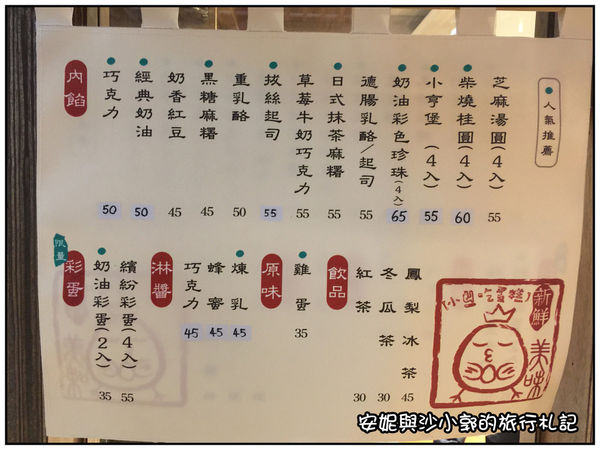 人氣推薦
芝麻湯圓(4入) 55
柴燒桂圓(4入) 60
小亨堡(4入) 55
奶油彩色珍珠(4入) 65
德腸乳酪/起司 55
日式抹茶麻糬 55
草莓牛奶巧克力 55
拔絲起司 55
重乳酪 50
黑糖麻糬 45
奶香紅豆 45
經典奶油 50
巧克力 50
內餡
鳳梨冰茶 45
冬瓜茶 30
紅茶 30
飲品
雞蛋 35
原味
煉乳 45
蜂蜜 45
巧克力 45
淋醬
繽紛彩蛋(4入) 55
奶油彩蛋(2入) 35
限量
彩蛋
新鮮
美味
安妮與沙小郭的旅行札記